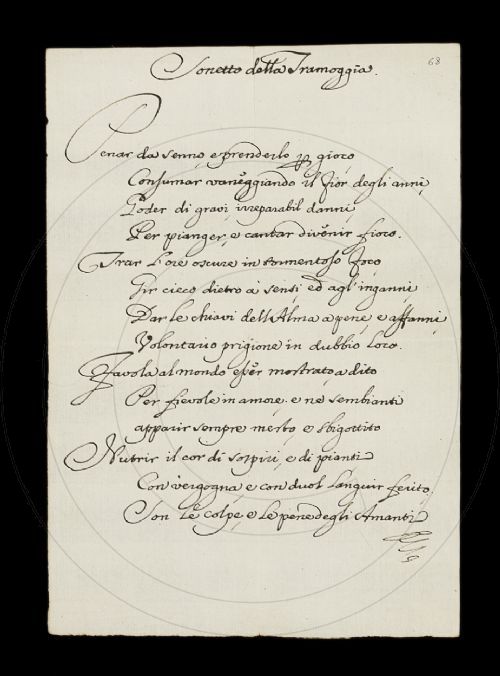 68
Sonetto della Tramoggia.
Penar da senno, e prenderlo p gioco
Consumar vaneggiando il fior degli anni,
Poder di gravi irreparabil danni
Per pianger, e cantar divenir fioco.
Trar l'ore oscure in tormentoso foco
Gir cieco dietro a' sensi, ed agl'inganni,
Dar le chiavi dell'Alma a pene, e affanni,
Volontario prigione in dubbio loco.
Favola al mondo esser mostrato a dito
Per fievole in amore, e ne' sembianti
apparir sempre mesto, e sbigottito
Nutrir il cor di sospiri, e di pianti
Con vergogna, e con duol languir ferito,
Son le colpe, e le pene degli Amanti